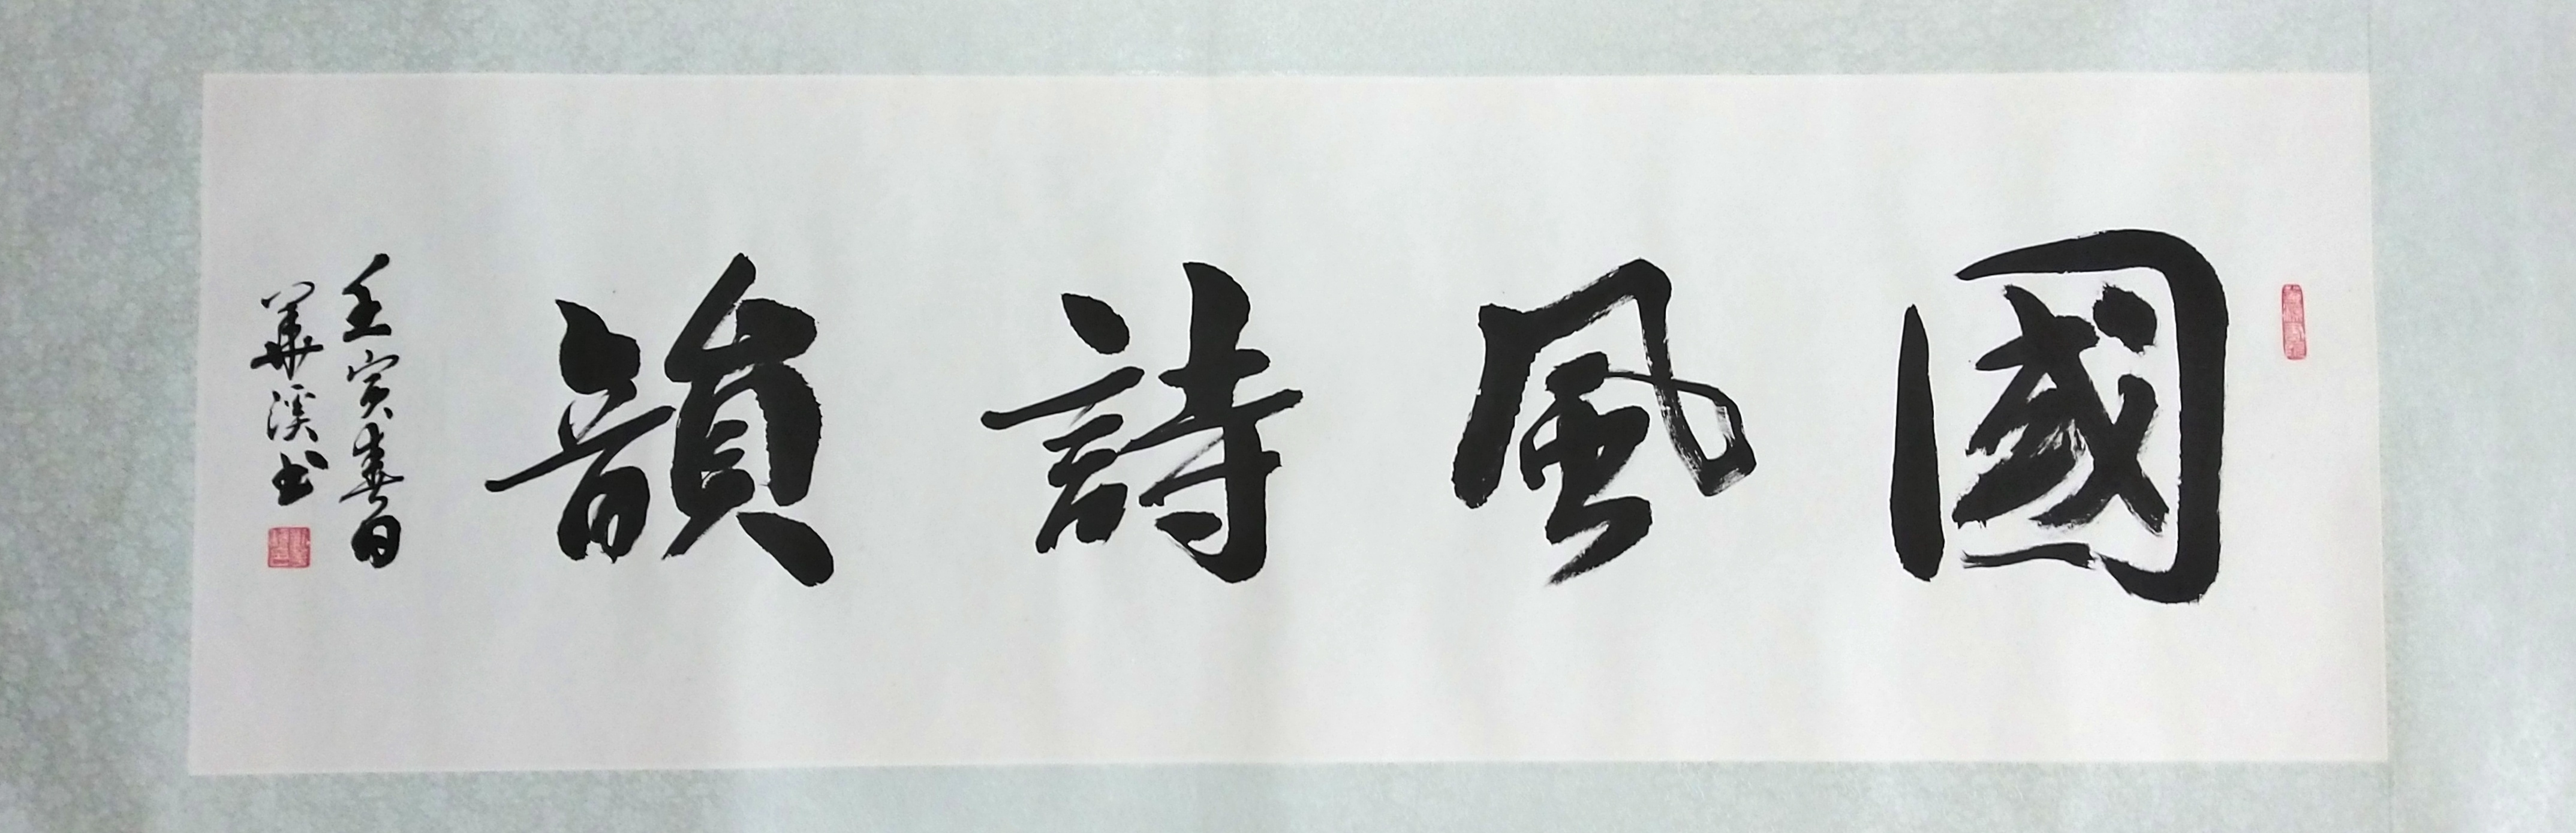 國風詩韻
壬寅春日
華溪书